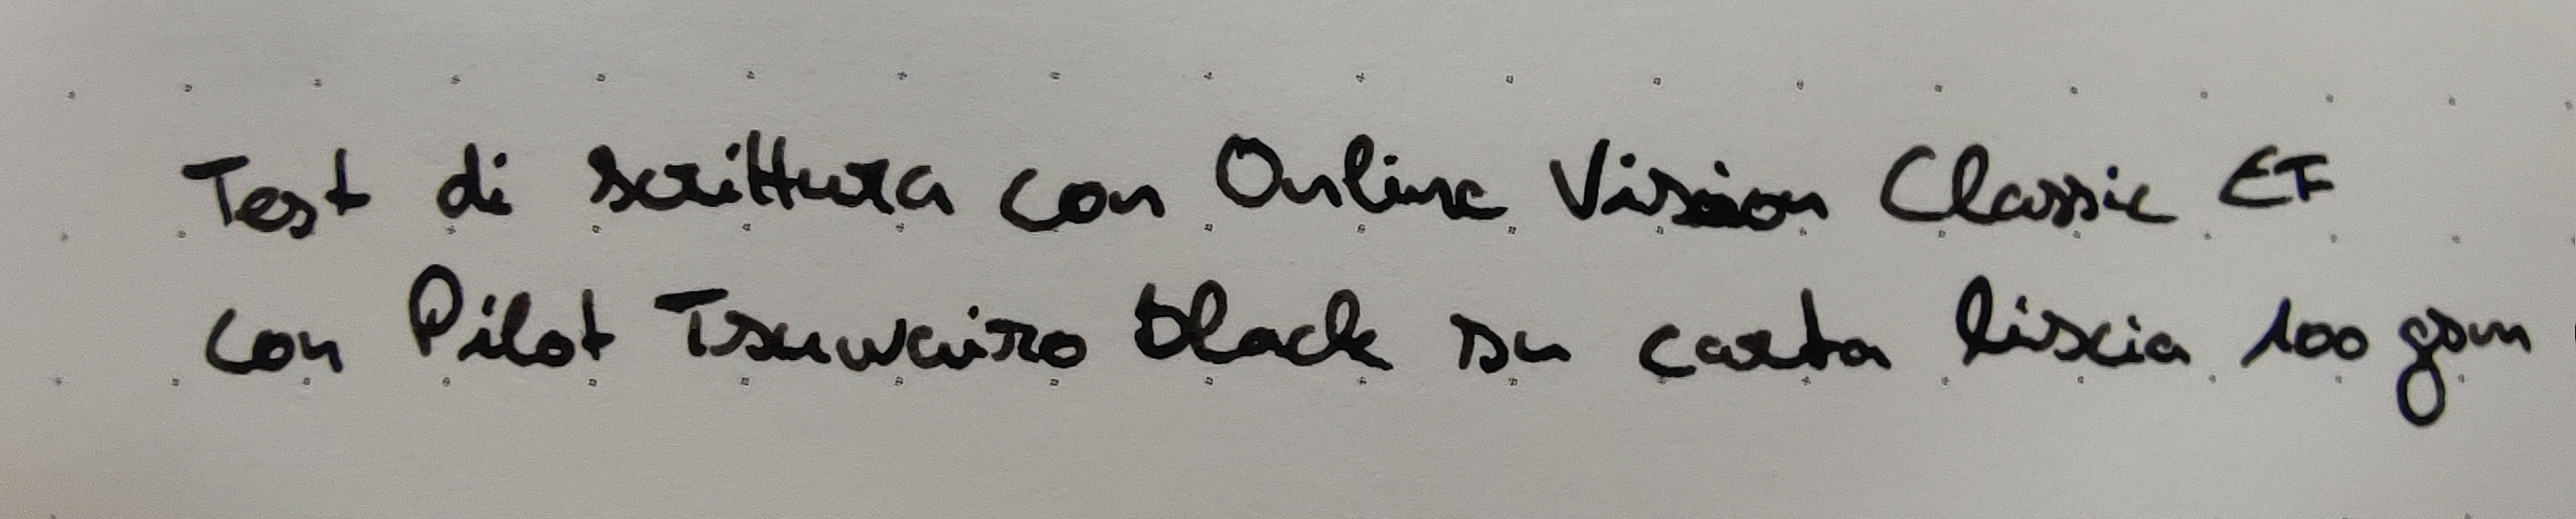 Test di scrittura con Online Vision Classic EF
con Pilot Tsuwairo Black su carta liscia 100 gsm